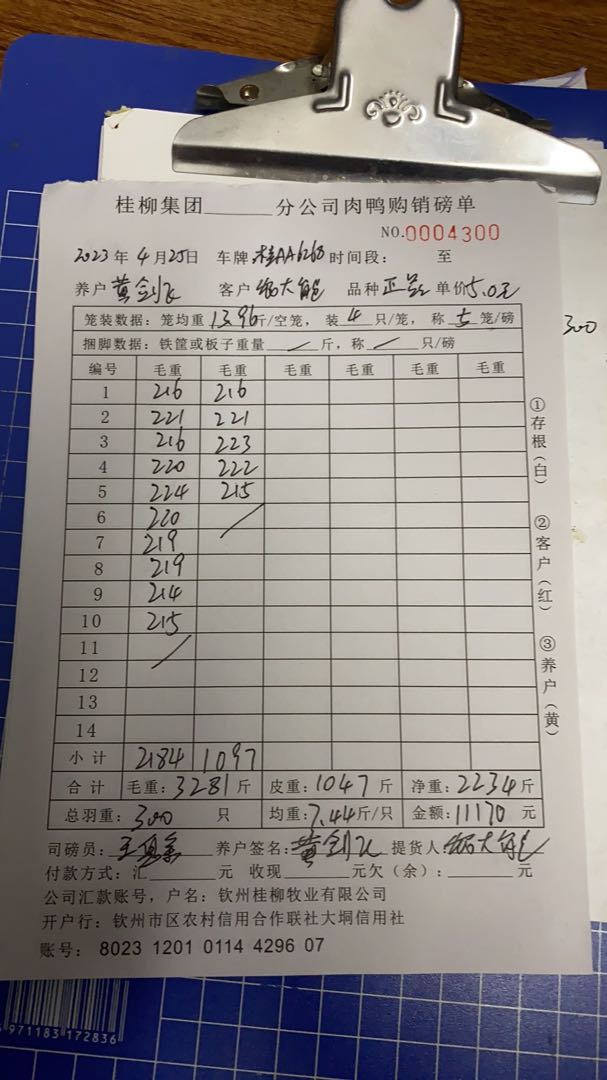 桂柳集团______分公司肉鸭购销磅单
NO.0004300
2023年4月25日 车牌桂AA6268时间段: 至
养户黄剑飞 客户 大 品种 正 单价5.0元
笼装数据: 笼均重13.96斤/空笼, 装4只/笼, 称5笼/磅
捆脚数据: 铁筐或板子重量 / 斤, 称 / 只/磅
编号 毛重 毛重 毛重 毛重 毛重 毛重
1 216 216
2 221 221
3 216 223
4 220 222
5 224 215
6 220 /
7 219
8 219
9 214
10 215
11 /
12
13
14
小计 2184 1097
合计 毛重:3281斤 皮重:1047斤 净重:2234斤
总羽重:300 只 均重:7.44斤/只 金额:11170元
司磅员:王 养户签名:黄剑飞 提货人 大
付款方式: 汇______元 收现______元欠(余):______元
公司汇款账号, 户名: 钦州桂柳牧业有限公司
开户行: 钦州市区农村信用合作联社大垌信用社
账号: 8023 1201 0114 4296 07
①存根(白)
②客户(红)
③养户(黄)
300
971183 172836